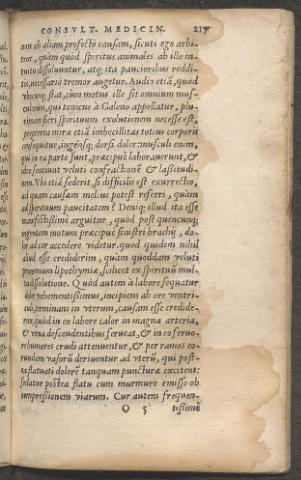 CONSVLT. MEDICIN. 217
um ob aliam profecto causam, sicuti ego arbi-
tror, quàm quòd spiritus animales ab illo in-
tuitu dissoluuntur, atq; ita paucioribus reddi-
tis, necessariò tremor augetur. Audio etiã, quod
vtcunq; stat, cùm motus ille sit omnium muscu-
lorum, qui tonicus à Galeno appellatur, plu-
rimam fieri spirituum exolutionem necesse est,
propterea mira etiã imbecillitas totius corporis
consequitur, ingensq; dorsi dolor: musculi enim,
qui in ea parte sunt, præcipuè laborauerunt, &
ideo sentiunt veluti confractionẽ & lassitudi-
nem. Vbi etiã sederit, si difficilis est exurrectio,
ad quam causam melius potest referri, quàm
ad spirituum paucitatem? Deniq; illud ita esse
manifestissimè arguitur, quòd post quencunq;
ingentem motum præcipuè sinistri brachij, do-
lor ad cor accedere videtur. quod quidem nihil
aliud esse crediderim, quàm quoddam veluti
proœmium lipothymiæ, scilicet ex spirituũ mul-
ta dissolutione. Quòd autem à labore sequatur
dolor vehementissimus, incipiens ab ore ventri-
culi, & terminans in vterum, causam esse credide-
rim, quòd in eo labore calor in magna arteria,
& vena descendentibus ferueat, & in eo feruo-
re humores crudi attenuentur, & per ramos eo-
rundem vasorũ deriuentur ad vterũ, qui post-
ea flatuati dolorẽ tanquam puncturæ excitent:
soluatur postea flatu cum murmure emisso ob
impressionem viarum. Cur autem frequen-
O 5 tissimè